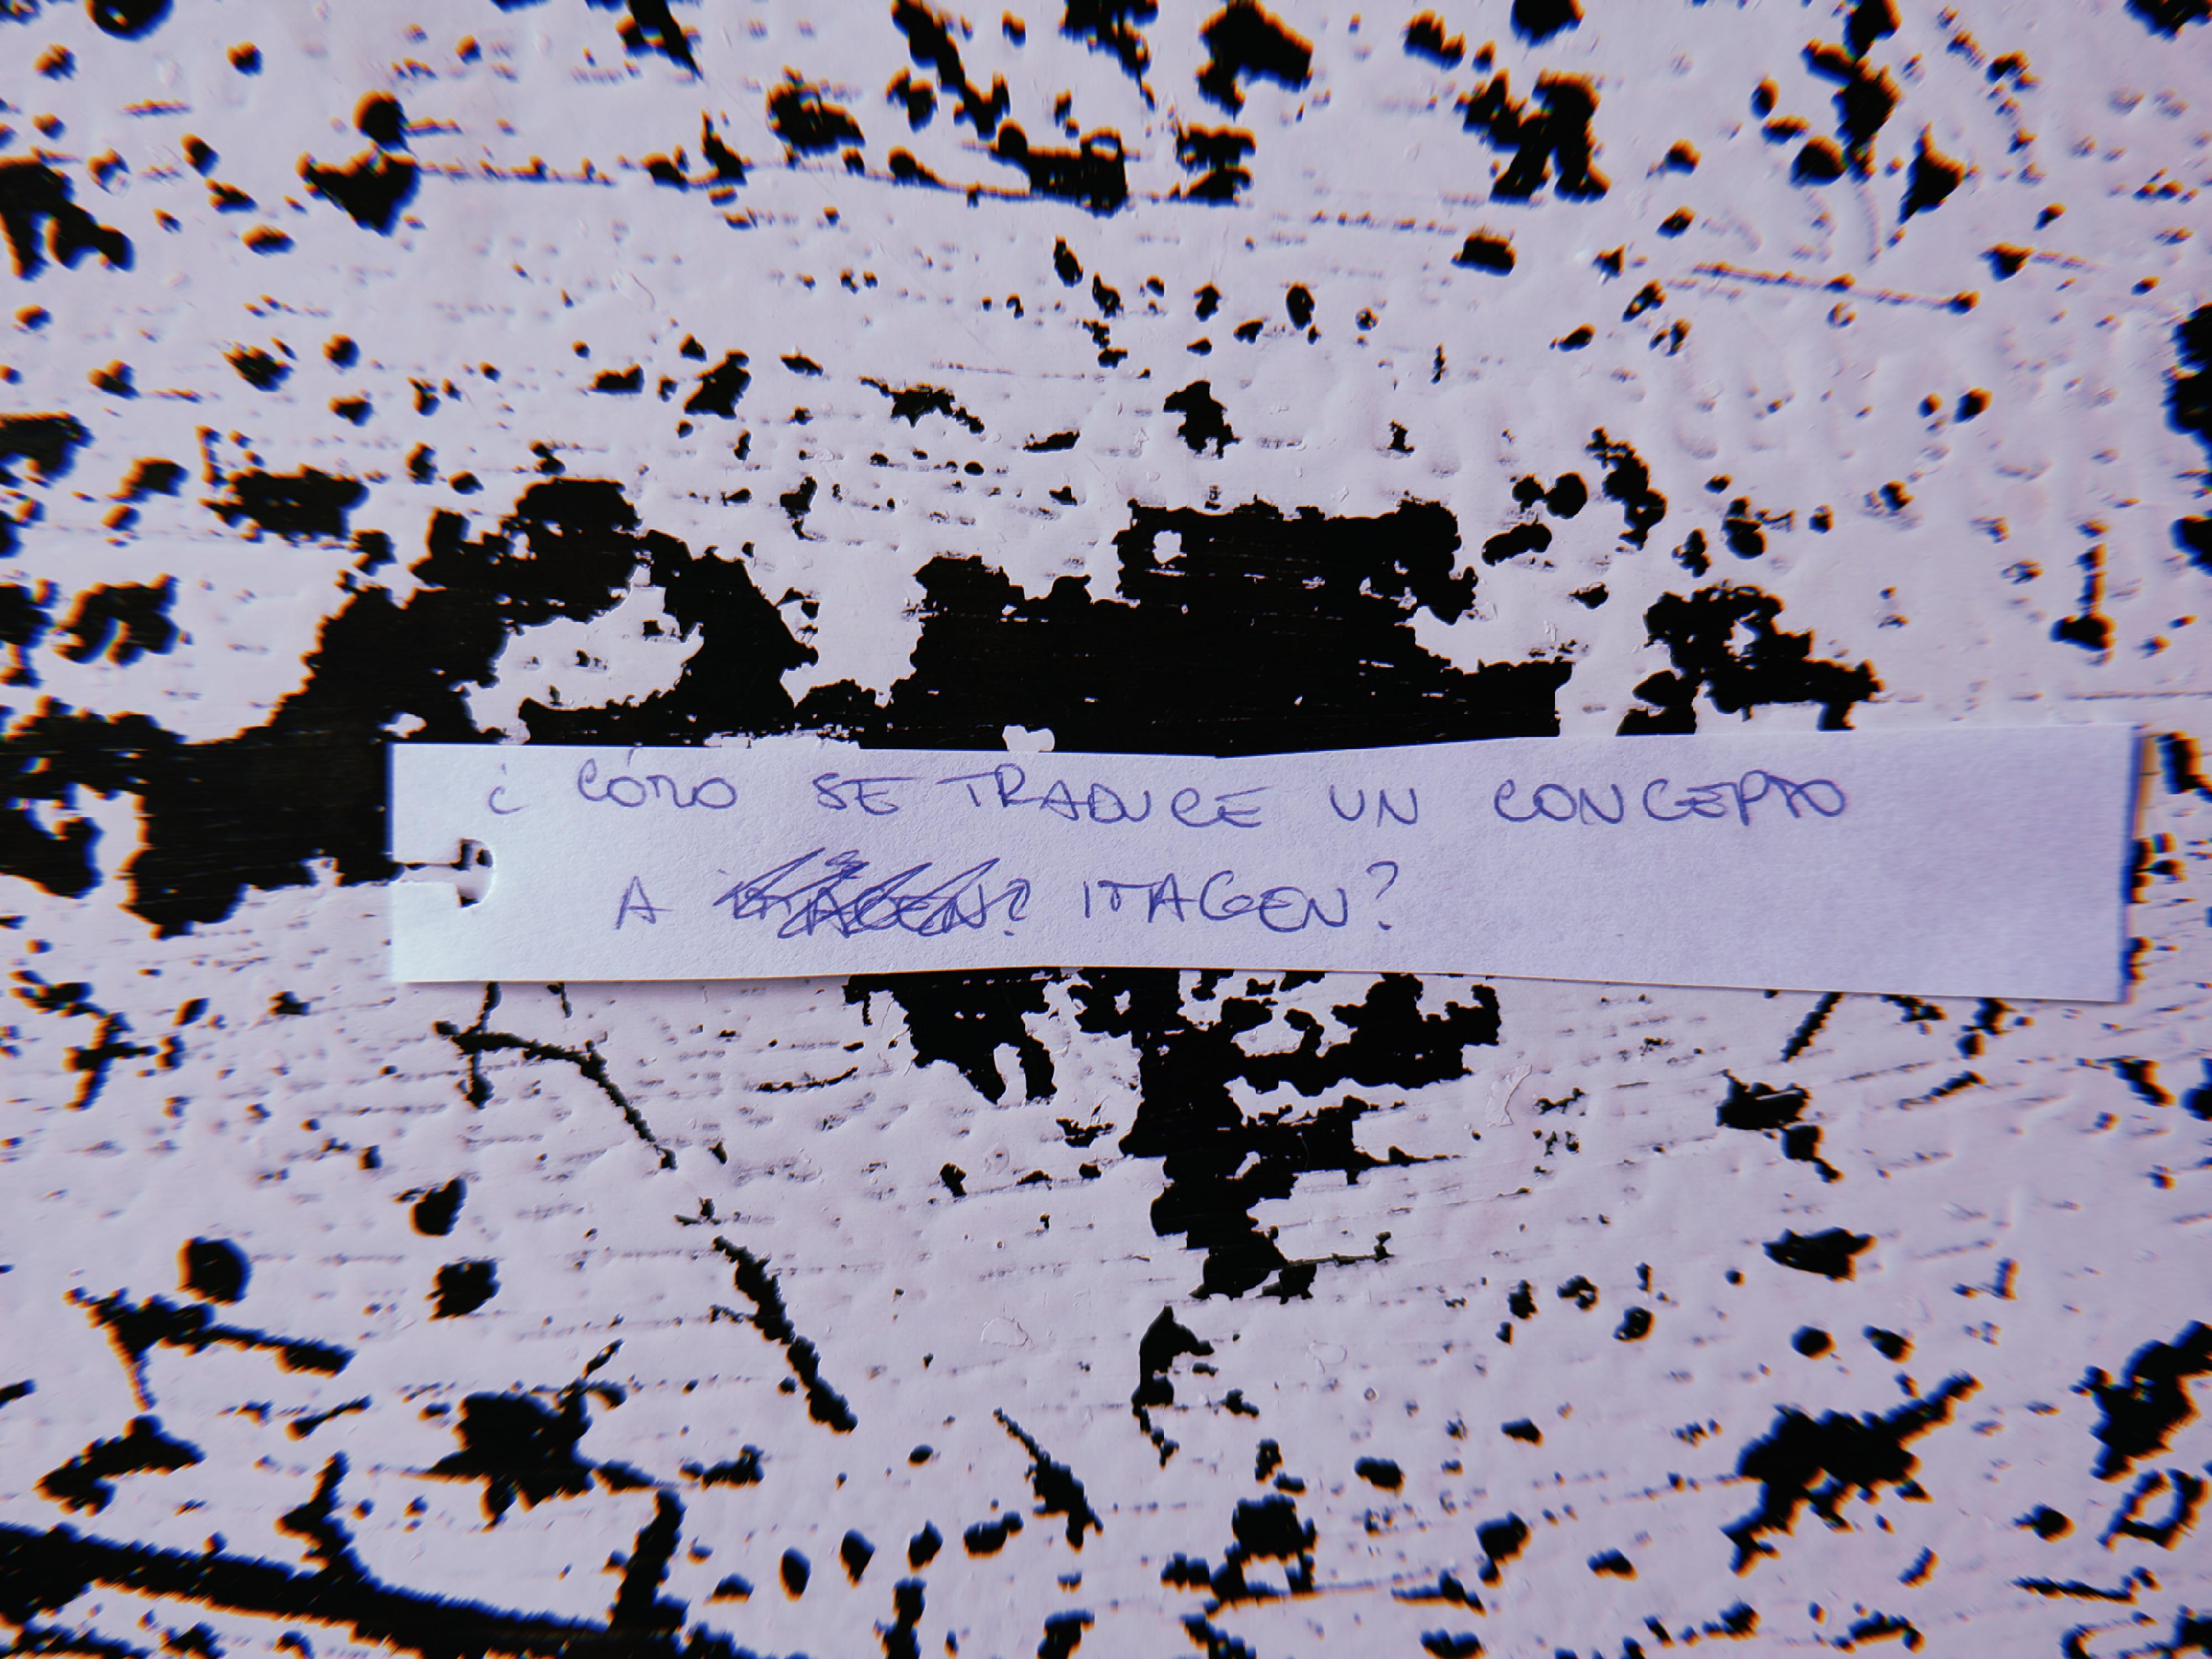 ¿CÓMO SE TRADUCE UN CONCEPTO
A IMAGEN?